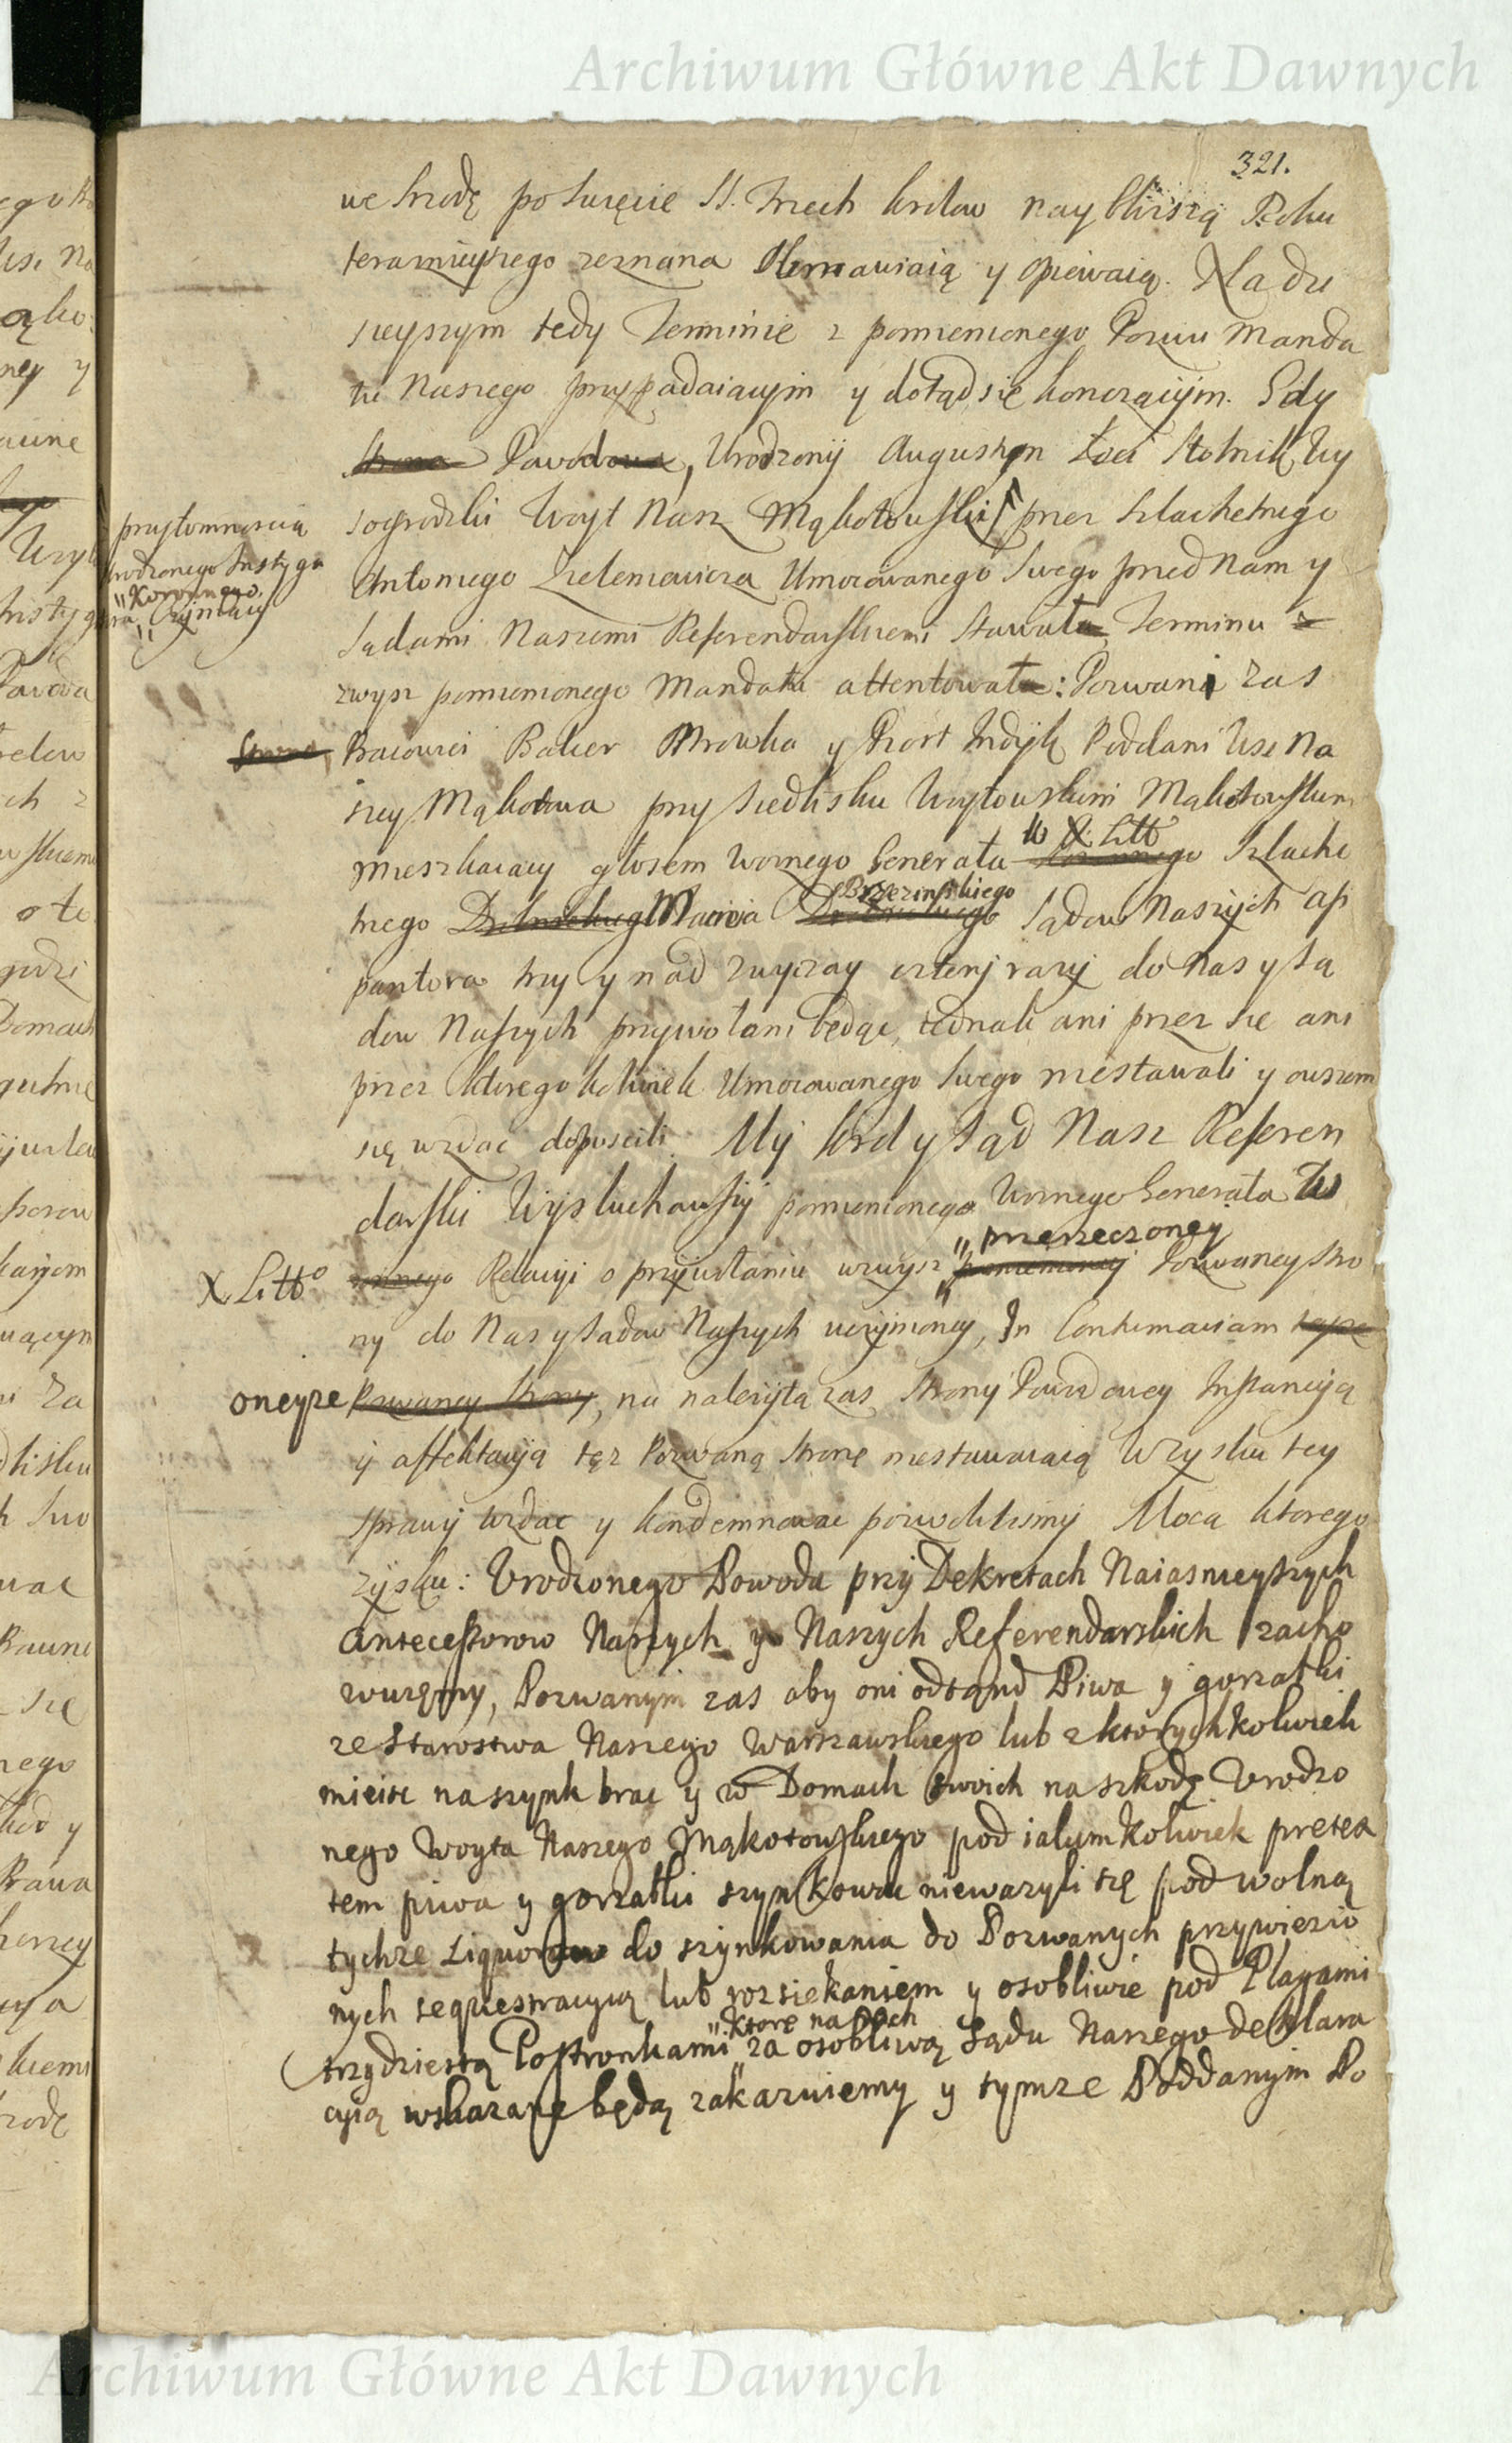 Archiwum Główne Akt Dawnych
321.
we srzodę po Swięcie SS. Trzech Krolow naybliższą Roku
teraznieyszego zeznana Obmawiaią y opiewaią. Na dzi
sieyszym tedy Terminie z pomienionego Pozwu Manda
tu Naszego przypadaiącym y dotąd się konczącym. Gdy
Strona Powodowa, Urodzony Augustyn Łoci Stolnik Wy
szogrodzki Woyt Nasz Mąkotowski przez Szlachetnego
przytomnoscią
Urodzonego Instyga
Koronnego
tora, Czyniący
Antoniego Umocowanego Swego przed Nam y
Sądami Naszemi Referendarskiemi Stawała Terminu z
zwysz pomienionego Mandatu attentowała: Pozwani zas
Strona Pracowici Balcer Mrowka y Piotr Indyk Poddani Wsi Na
szey Mąkotowa przy Siedlisku Woytowskim Mąkotowskim
mieszkaiący głosem Woznego Generała Koronnego W X Litt Szlache
tnego Macieia Brzezinskiego Sądow Naszych ap
paritora trzy y nad zwyczay czterj razy do Nas y Są
dow Naszych przywołani będąc, iednak ani przez się ani
przez ktorego kolwiek Umocowanego Swego niestawali y owszem
się wzdac dopuscili. My Krol y Sąd Nasz Referen
darski Wysłuchawszy pomienionego Woznego Generała W
X Litto Relacyi o przywołaniu wzwysz pomienioney przerzeczoney Pozwaney Stro
ny do Nas y Sadow Naszych uczynioney, In Contumaciam tepze
oneyze Pozwaney Strony, na nalezytą zas Strony Powodowey Instancyą
y affektacyą tęz Pozwaną Stronę niestawaiącą W zysku tey
sprawy wzdac y kondemnowac pozwolilismy Mocą ktorego
zysku: Urodzonego Powoda przy Dekretach Naiasnieyszych
Antecessorow Naszych y Naszych Referendarskich zacho
wuięmy, Pozwanym zas aby oni odtąnd Piwa y gorzałki
ze Starostwa Naszego Warszawskiego lub z ktorychkolwiek
mieisc na szynk brac y w Domach swoich na szkodę Urodzo
nego Woyta Naszego Mąkotowskiego pod iakimkolwiek pretex
tem piwa y gorzałki szynkowac niewazyli się pod wolną
tychze Liquorow do szynkowania do Pozwanych przywiezio
nych sequestracyią lub rozsiekaniem y osobliwie pod Plagami
trzydziestą Postronkami ktore na Nich za osobliwą Sądu Naszego deklara
cyią wskazane będą zakazuiemy y tymze Poddanym Po
Archiwum Główne Akt Dawnych